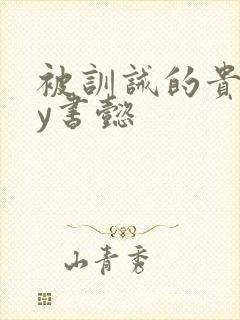 被訓誡的貴
y書懿
山青秀